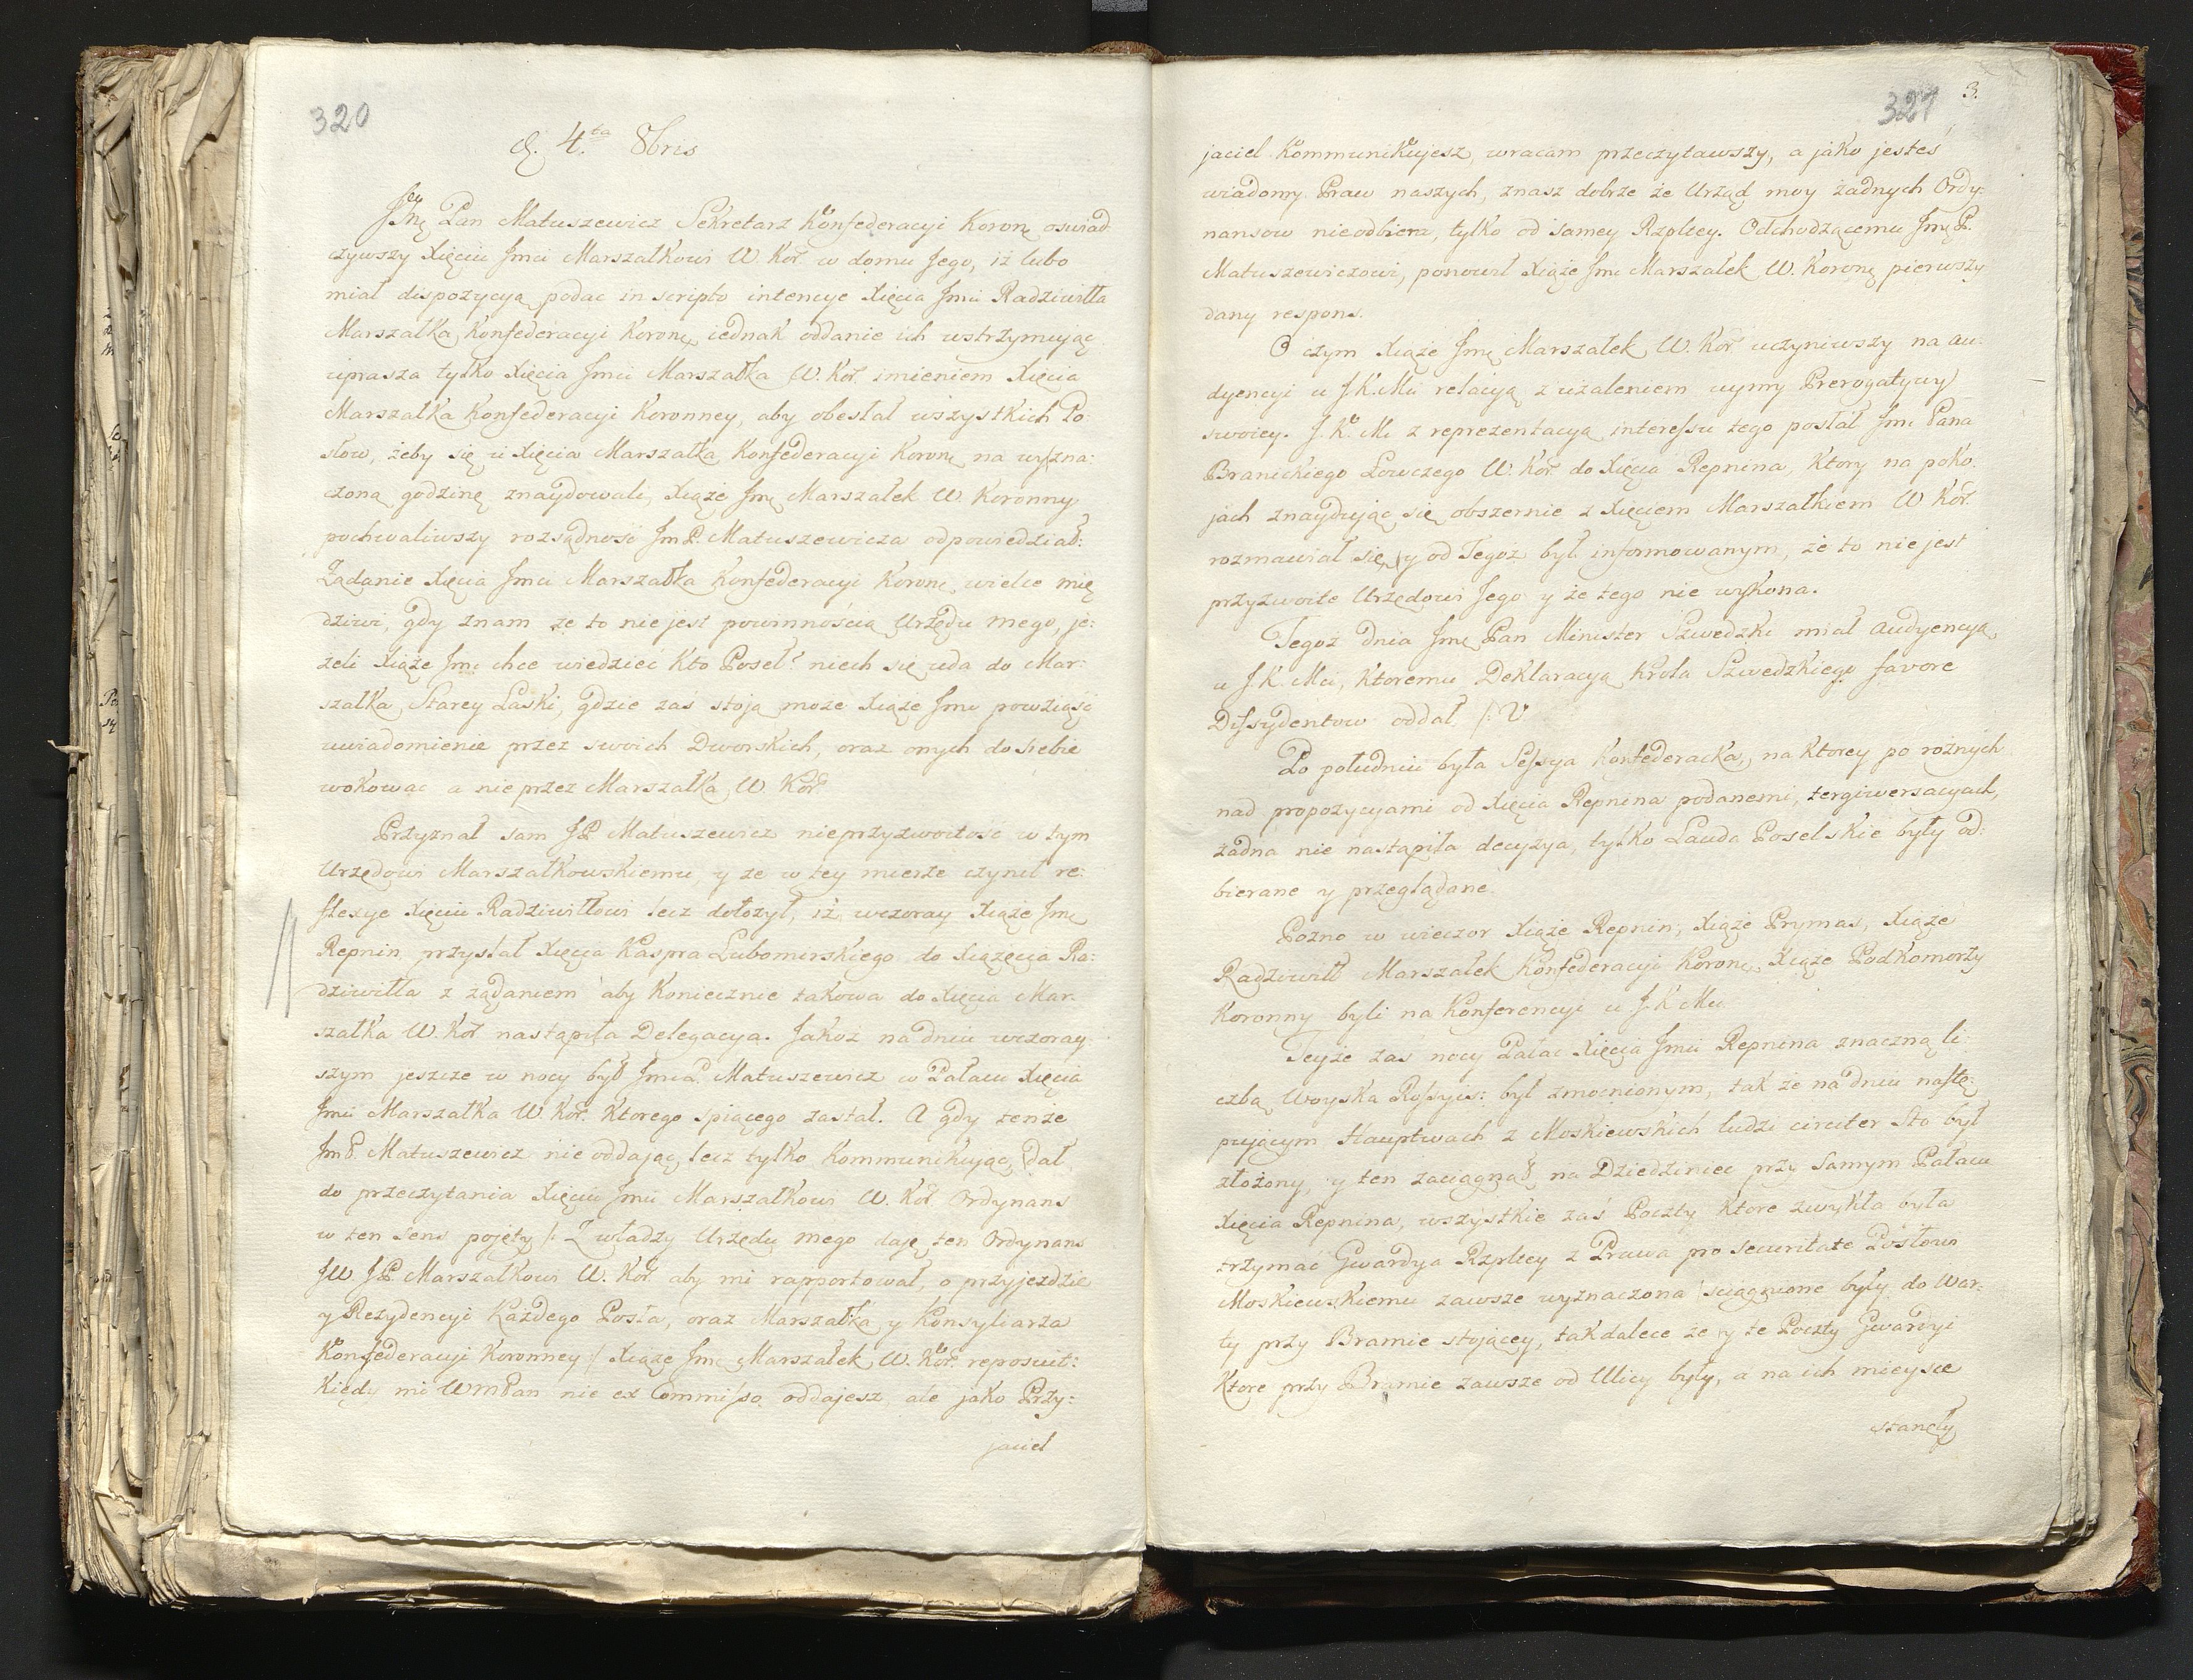 320
d. 4.ta 8bris
Jmę Pan Matuszewicz Sekretarz Konfederacyi Koronę oswiad
czywszy Xięciu Jmci Marszałkowi W. Kor. w domu Jego, iż lubo
miał dispozycyą podac in scripto intencye Xięcia Jmci Radziwiłła
Marszałka Konfederacyi Koronę, iednak oddanie ich wstrzymuiąc
uprasza tylko Xięcia Jmci Marszałka W. Kor. imieniem Xięcia
Marszałka Konfederacyi Koronney, aby obesłał wszystkich Po-
słow, żeby się u Xięcia Marszałka Konfederacyi Koronę na wyzna:
czoną godzinę znaydowali, Xiąże Jmę Marszałek W. Koronny
pochwaliwszy rozsądnosć JmP. Matuszewicza odpowiedział:
Żądanie Xięcia Jmci Marszałka Konfederacyi Koronę wielce mię
dziwi, gdy znam że to nie jest powinnością Urzędu mego, je:
żeli Xiąże Jmc chce wiedzieć Kto Poseł? niech się uda do Mar:
szałka Starey Laski, gdzie zaś stoją może Xiąże Jmc powziąść
uwiadomienie przez swoich Dworskich, oraz onych do siebie
wokowac a nie przez Marszałka W. Kor.
Przyznał sam JP. Matuszewicz nieprzyzwoitość w tym
Urzędowi Marszałkowskiemu, y że w tey mierze czynił re:
flexye Xięciu Radziwiłłowi lecz dołożył, iż wczoray Xiąże Jmę
Repnin przysłał Xięcia Kaspra Lubomirskiego do Xiążęcia Ra:
dziwiłła z żądaniem aby Koniecznie takowa do Xięcia Mar-
szałka W. Kor. nastąpiła Delegacya. Jakoż na dniu wczoray
szym jeszcze w nocy był JmciP. Matuszewicz w Pałacu Xięcia
Jmci Marszałka W. Kor. Ktorego spiącego zastał. A gdy tenże
JmP. Matuszewicz nie oddając, lecz tylko Kommunikując, dał
do przeczytania Xięciu Jmci Marszałkowi W. Kor. Ordynans
w ten sens pojęty /: Z władzy Urzędu mego daję ten Ordynans
JW JP Marszałkowi W. Kor. aby mi rapportował, o przyjezdzie
y Rezydencyi Każdego Posła, oraz Marszałka y Konsyliarza
Konfederacyi Koronney :/ Xiąże Jmc Marszałek W. Kor. reposuit:
Kiedy mi WmPan nie ex Commisso oddajesz, ale jako Przy:
jaciel
327 3.
jaciel Kommunikujesz, wracam przeczytawszy, a jako jesteś
wiadomy Praw naszych, znasz dobrze że Urząd moy żadnych Ordy:
nansow nieodbiera, tylko od samey Rzpltey. Odchodzącemu JmęP.
Matuszewiczowi, ponowił Xiąże Jmc Marszałek W. Koronę pierwszy
dany respons.
O czym Xiąże Jmę Marszałek W. Kor. uczyniwszy na au:
dyencyi u J.K.Mci relacyą z użaleniem uymy Prerogatywy
swoiey. J.K. M. z reprezentacyą interessu tego posłał Jmc Pana
Branickiego Łowczego W. Kor. do Xięcia Repnina, Ktory na poko
jach znayduiąc się obszernie z Xięciem Marszałkiem W Kor.
rozmawiał się, y od Tegoż był informowanym, że to nie jest
przyzwoite Urzędowi Jego y że tego nie wykona.
Tegoż dnia Jmę Pan Minister Szwedzki miał audyencyą
u J.K. Mci, Ktoremu Deklaracyą Krola Szwedzkiego favore
Dyssydentow oddał /: V
Po południu była Sessya Konfederacka, na Ktorey po rożnych
nad propozycyami od Xięcia Repnina podanemi, tergiwersacyach,
żadna nie nastąpiła decyzya, tylko Lauda Poselskie były od:
bierane y przeglądane.
Pozno w wieczor Xiąże Repnin, Xiąże Prymas, Xiąże
Radziwiłł Marszałek Konfederacyi Koronę, Xiąże Podkomorzy
Koronny byli na Konferencyi u J.K Mci
Teyże zaś nocy Pałac Xięcia Jmci Repnina znaczną li
czbą Woyska Rossyis: był zmocnionym, tak że na dniu nastę:
pującym Hauptwach z Moskiewskich ludzi circiter Sto był
złożony, y ten zaciągnął na Dziedziniec przy samym Pałacu
Xięcia Repnina, wszystkie zaś Poczty Ktore zwykła była
trzymać Gwardya Rzpltey z Prawa pro securitate Posłowi
Moskiewskiemu zawsze wyznaczona sciągnione były do War:
ty przy Bramie stojącey, tak dalece że y te Poczty Gwardyi
Ktore przy Bramie zawsze od Ulicy były, a na ich mieysce
stanęły